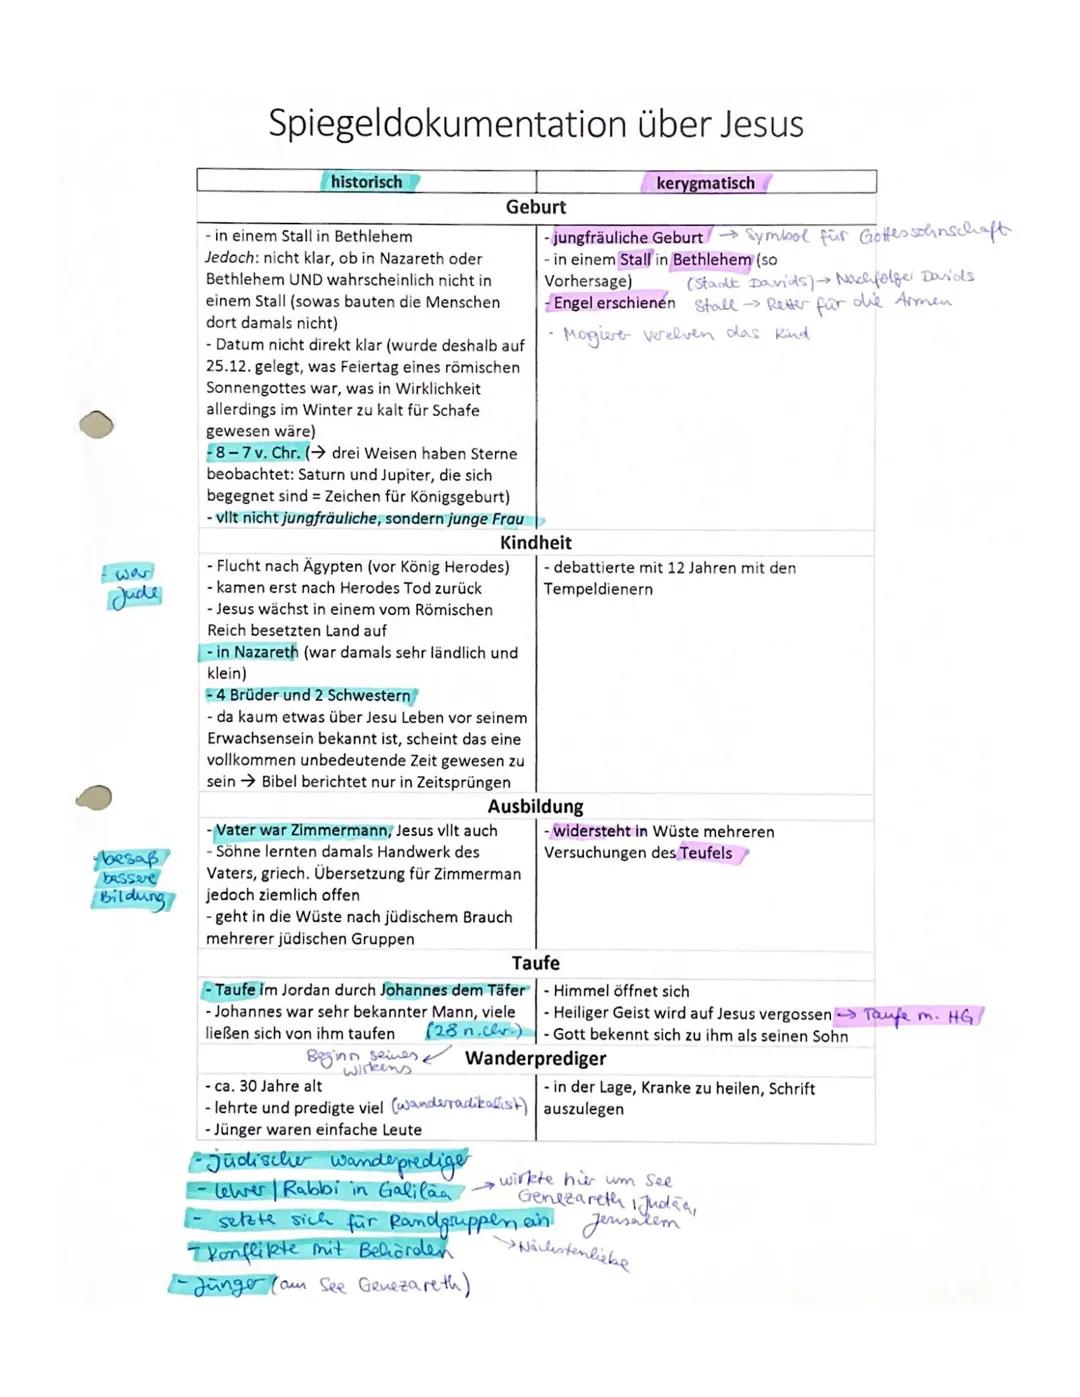 Spiegeldokumentation über Jesus
historisch
kerygmatisch
Geburt
- in einem Stall in Bethlehem
Jedoch: nicht klar, ob in Nazareth oder
Bethlehem UND wahrscheinlich nicht in
einem Stall (sowas bauten die Menschen
dort damals nicht)
- Datum nicht direkt klar (wurde deshalb auf
25.12. gelegt, was Feiertag eines römischen
Sonnengottes war, was in Wirklichkeit
allerdings im Winter zu kalt für Schafe
gewesen wäre)
- 8 – 7 v. Chr. (→ drei Weisen haben Sterne
beobachtet: Saturn und Jupiter, die sich
begegnet sind = Zeichen für Königsgeburt)
- vllt nicht jungfräuliche, sondern junge Frau
- jungfräuliche Geburt → Symbol für Gottessohnschaft
- in einem Stall in Bethlehem (so
Vorhersage) (Stadt Davids) → Nachfolger Davids
- Engel erschienen Stall → Retter für die Armen
- Magier verehren das Kind
Kindheit
- war
Jude
- Flucht nach Ägypten (vor König Herodes)
- kamen erst nach Herodes Tod zurück
- Jesus wächst in einem vom Römischen
Reich besetzten Land auf
- in Nazareth (war damals sehr ländlich und
klein)
- 4 Brüder und 2 Schwestern
- da kaum etwas über Jesu Leben vor seinem
Erwachsensein bekannt ist, scheint das eine
vollkommen unbedeutende Zeit gewesen zu
sein → Bibel berichtet nur in Zeitsprüngen
- debattierte mit 12 Jahren mit den
Tempeldienern
Ausbildung
- besaß
bessere
Bildung
- Vater war Zimmermann, Jesus vllt auch
- Söhne lernten damals Handwerk des
Vaters, griech. Übersetzung für Zimmerman
jedoch ziemlich offen
- geht in die Wüste nach jüdischem Brauch
mehrerer jüdischen Gruppen
- widersteht in Wüste mehreren
Versuchungen des Teufels
Taufe
- Taufe im Jordan durch Johannes dem Täfer
- Johannes war sehr bekannter Mann, viele
ließen sich von ihm taufen (28 n. Chr.)
- Himmel öffnet sich
- Heiliger Geist wird auf Jesus vergossen → Taufe m. HG
- Gott bekennt sich zu ihm als seinen Sohn
Beginn seines
Wirkens
Wanderprediger
- ca. 30 Jahre alt
- lehrte und predigte viel (Wanderradikalist)
- Jünger waren einfache Leute
- in der Lage, Kranke zu heilen, Schrift
auszulegen
- Jüdischer Wanderprediger
- Lehrer | Rabbi in Galiläa → wirkte hier um See
Genezareth, Judäa,
Jerusalem
- setzte sich für Randgruppen ein
→ Nächstenliebe
- Konflikte mit Behörden
- Jünger (am See Genezareth)